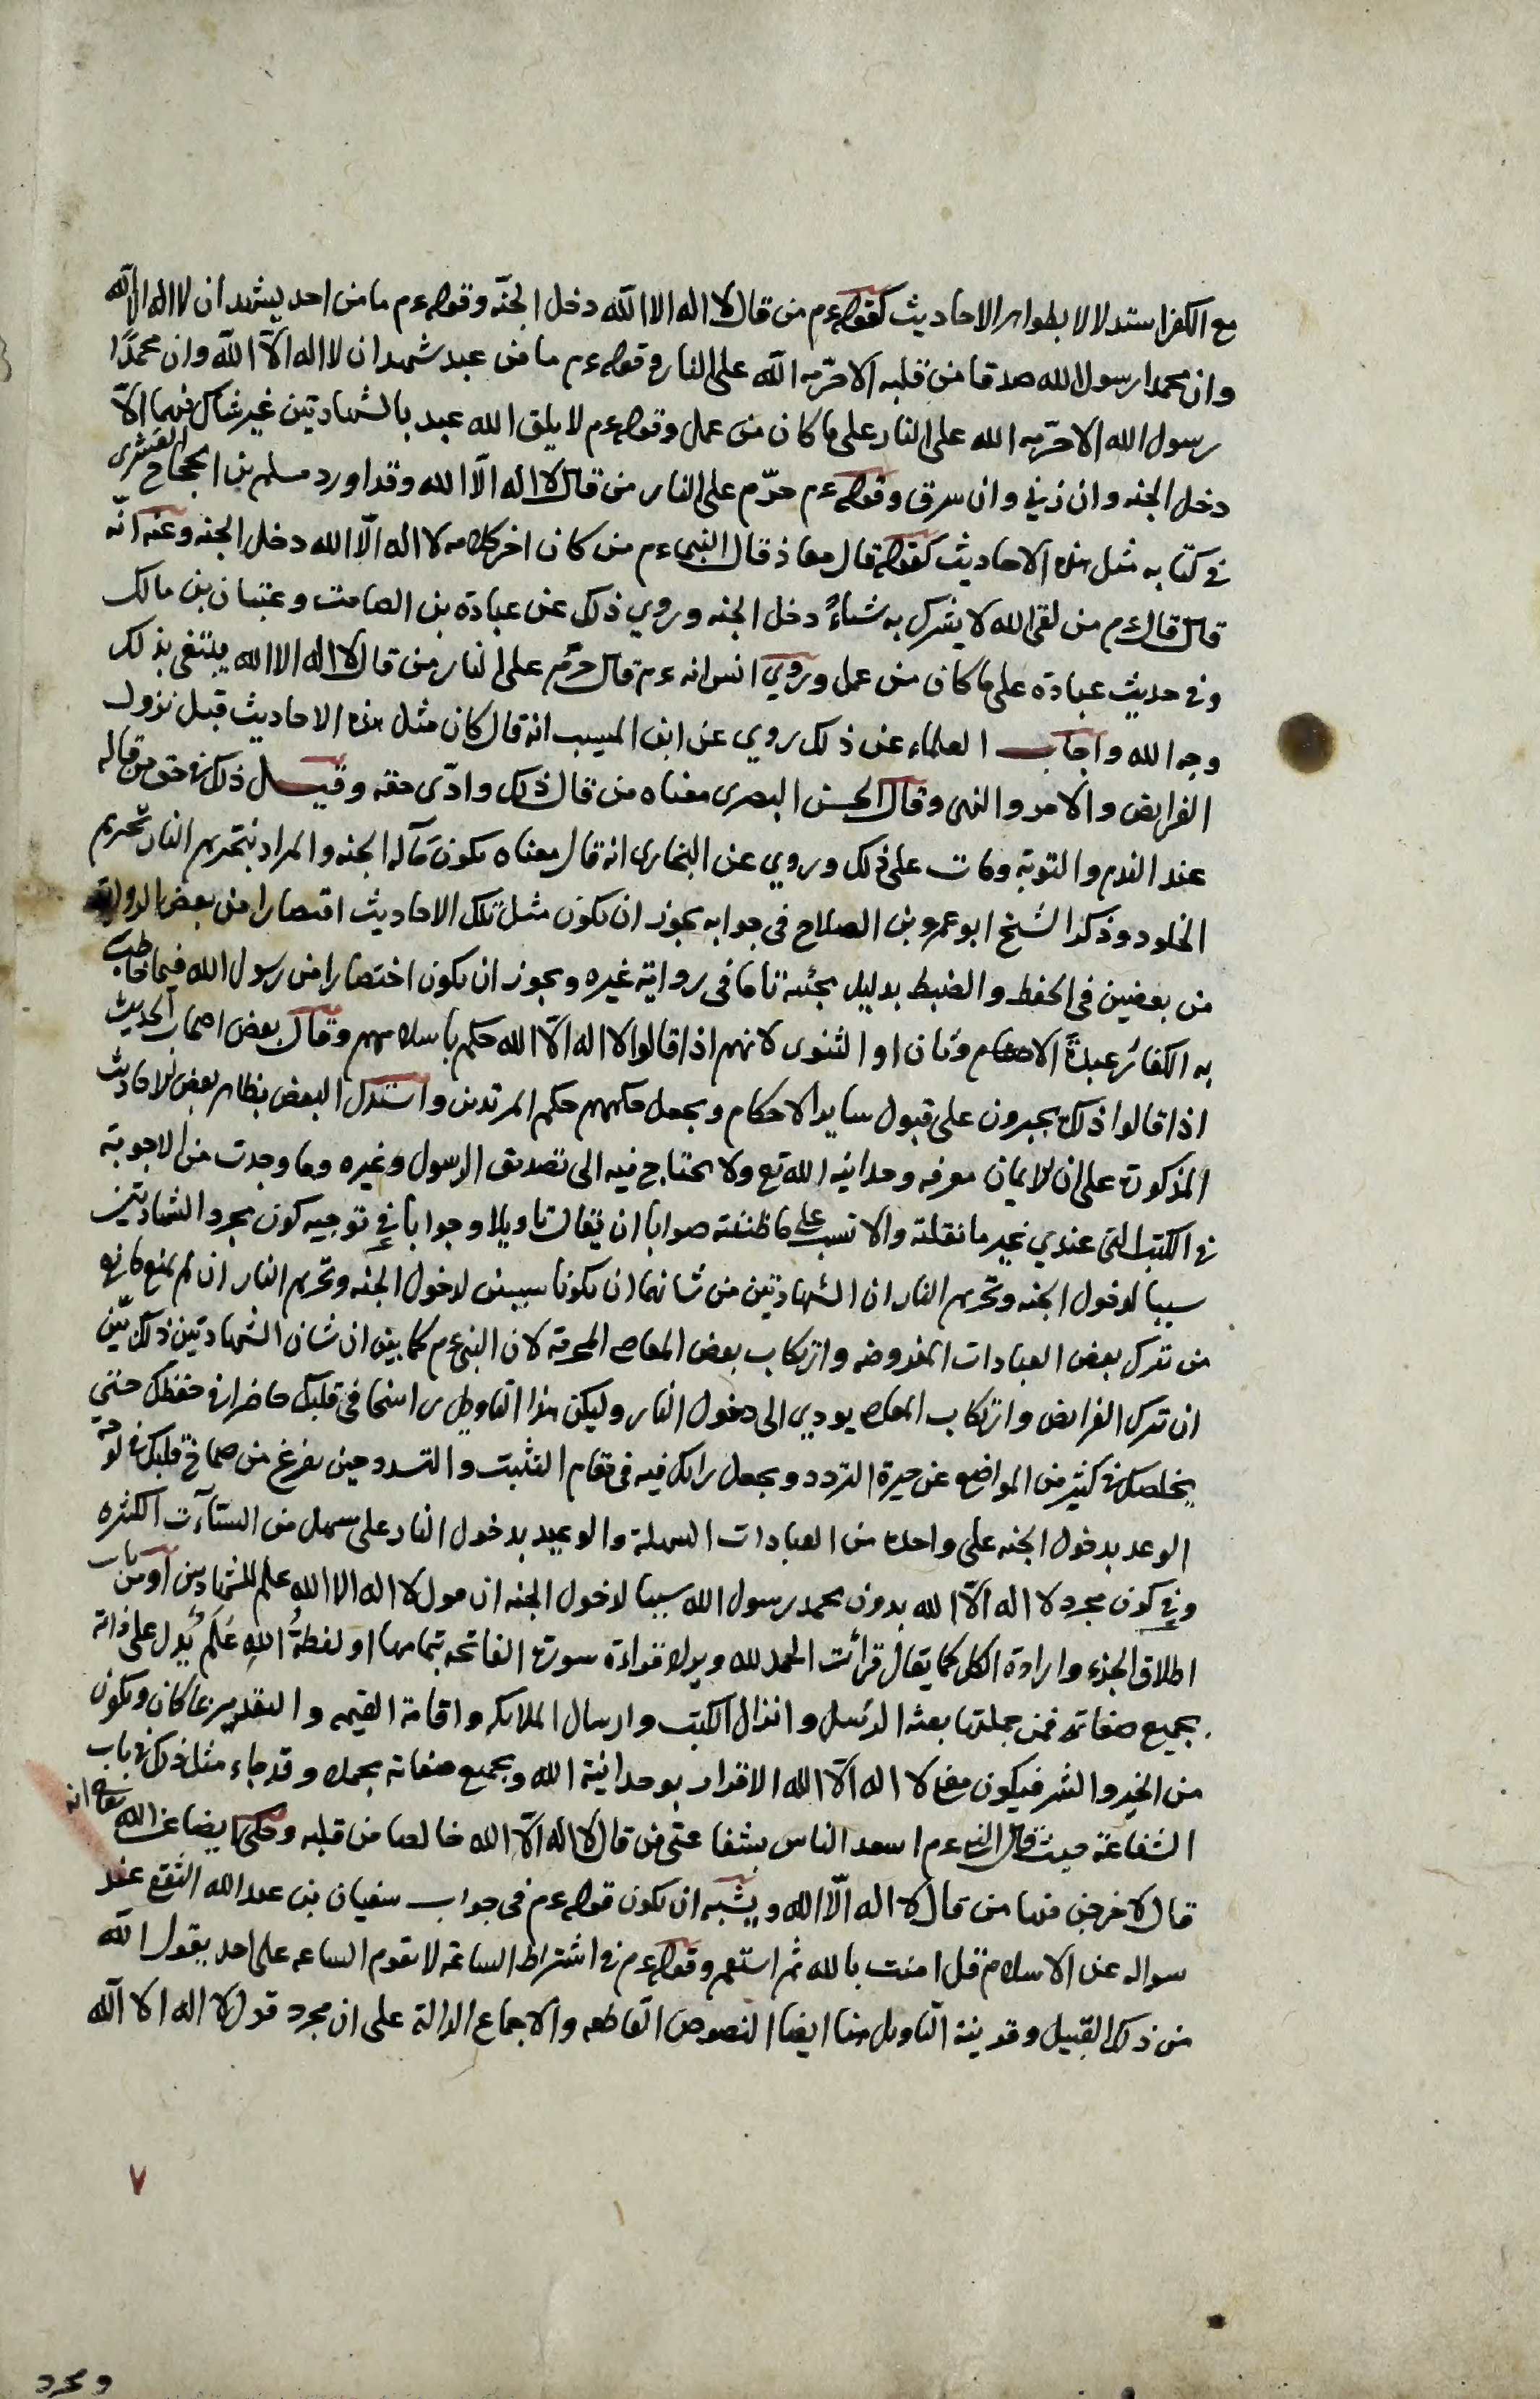 مع الكفر استدلالا بظواهر الاحاديث كقوله ءم من قال لا اله الا الله دخل الجنّة وقوله ءم ما من احد يشهد ان لا اله الا الله
وان محمدا رسول الله صدقا من قلبه الا حرّمه الله على النار وقوله ءم ما من عبد شهد ان لا اله الاّ الله وان محمدًا
رسول الله الا حرّمه الله على النار على ما كان من عمل وقوله ءم لا يلق الله عبد بالشهادتين غير شاك فيهما الاّ
دخل الجنه وان زني وان سرق وقوله ءم حرّم على النار من قال لا اله الاّ الله وقد اورد مسلم بن الحجاج القشيرى
في كتابه مثل هذه الاحاديث كقوله قال معاذ قال النبى ءم من كان اخر كلامه لا اله الاّ الله دخل الجنه وعنه انّه
قال قال ءم من لقى الله لا يشرك به شياءً دخل الجنه وروي ذلك عن عبادة بن الصامت وعتبان بن مالك
وفي حديث عبادة على ما كان من عمل وروي انس انه ءم قال حرّم على النار من قال لا اله الا الله يبتغى بذلك
وجه الله واجاب العلماء عن ذلك روي عن ابن المسيب انه قال كان مثل هذه الاحاديث قبل نزول
الفرايض والامر والنهى وقال الحسن البصرى معناه من قال ذلك وادّى حقه وقيل ذلك في حق من قاله
عند الندم والتوبة ومات على ذلك وروي عن البخارى انه قال معناه يكون مآله الجنه والمراد بتحريم النار تحريم
الخلود وذكر الشيخ ابو عمرو بن الصلاح في جوابه يجوز ان يكون مثل تلك الاحاديث اقتصارا من بعض الرواة
من بعضين في الحفظ والضبط بدليل مجئه تاما في رواية غيره ويجوز ان يكون اختصارا من رسول الله فيما خاطب
به الكفار عبدة الاصنام وثان او الثنوى لانهم اذا قالوا لا اله الاّ الله حكم باسلامهم وقال بعض اصحاب الحديث
اذا قالوا ذلك يجبرون على قبول ساير الاحكام ويجعل حكمهم حكم المرتدين واستدل البعض بظاهر بعض الاحاديث
المذكورة على ان الايمان معرفه وحدانيه الله تع ولا يحتاج فيه الى تصديق الرسول وغيره وما وجدت من الاجوبة
في الكتب التى عندي غير ما نقلته والانسب على ما ظننته صوابا ان يقال تاويلا وجوابا في توجيه كون مجرد الشهادتين
سببا لدخول الجنه وتحريم النار ان الشهادتين من شانهما ان يكونا سببين لدخول الجنه وتحريم النار ان لم يمنع مانع
من ترك بعض العبادات المفروضه وارتكاب بعض المعاصى المحرمة لان النبى ءم كما بين ان شان الشهادتين ذلك بيّن
ان ترك الفرايض وارتكاب المعاصى يودي الى دخول النار وليكن هذا التاويل راسخا في قلبك حاضرا في حفظك حتى
يخلصك في كثير من المواضع عن حيرة التردد ويجعل رايك فيه في مقام التثبت والتسدد حين يفرغ من صماخ قلبك في لوحة
الوعد بدخول الجنه على واحده من العبادات السهلة والوعيد بدخول النار على سهل من السيّآت الكثيره
وفي كون مجرد لا اله الاّ الله بدون محمد رسول الله سببا لدخول الجنه ان قول لا اله الا الله علم للشهادتين او من باب
اطلاق الجزء وارادة الكل كما يقال قرائت الحمد لله ويراد قراءة سورة الفاتحه بتمامها او لفظةُ اللهِ عَلَم يُدل على ذاته
بجميع صفاته فمن جملتها بعثه الرسل وانزال الكتب وارسال الملايكه واقامة القيمه والتقدير بما كان ويكون
من الخير والشر فيكون معنى لا اله الاّ الله الاقرار بوحدانية الله وبجميع صفاته بجملة وقد جاء مثل ذلك في باب
الشفاعة حيث قال النبى ءم اسعد الناس بشفاعتى من قال لا اله الاّ الله خالصا من قلبه وحكى ايضا عن الله تعالى انه
قال لاخرجن منها من قال لا اله الاّ الله ويشبه ان يكون قوله ءم في جواب سفيان بن عبد الله الثقفى عند
سواله عن الاسلام قل امنت بالله ثم استقم وقوله ءم في اشتراط الساعة لا تقوم الساعه على احد يقول الله
من ذلك القبيل وقرينة التاويل هنا ايضا النصوص القاطعه والاجماع الدالة على ان مجرد قول لا اله الا الله
٧
ومجرد